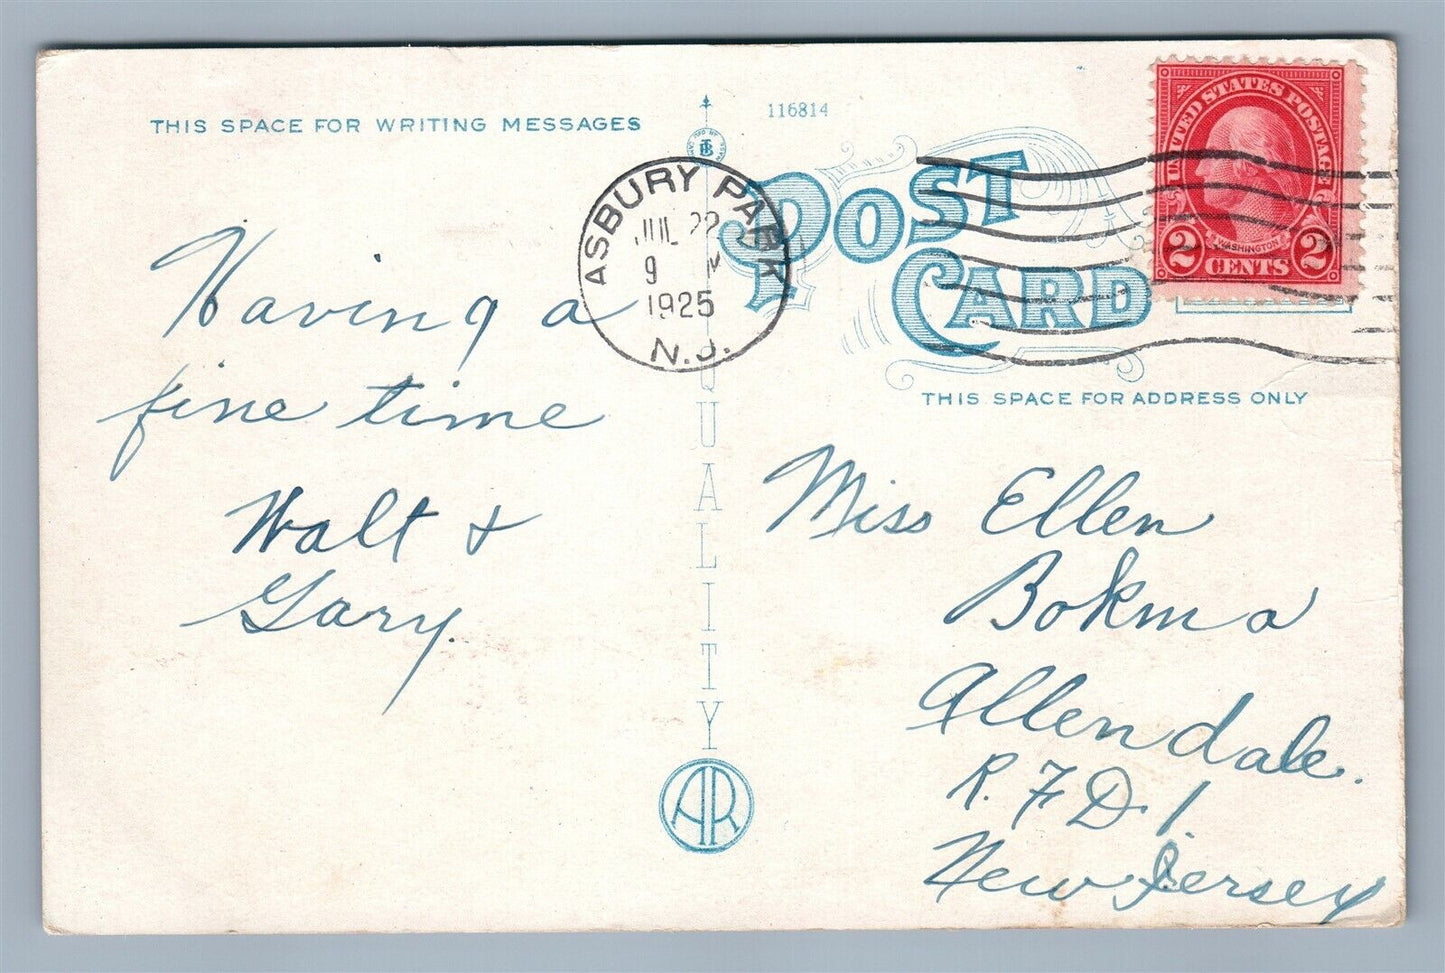 THIS SPACE FOR WRITING MESSAGES
116814
POST
CARD
UNITED STATES POSTAGE
WASHINGTON
2 CENTS 2
ASBURY PARK
JUL 22
9 M
1925
N.J.
THIS SPACE FOR ADDRESS ONLY
QUALITY
AR
Having a
fine time
Walt &
Gary.
Miss Ellen
Bokma
Allendale.
R.F.D. 1.
New Jersey